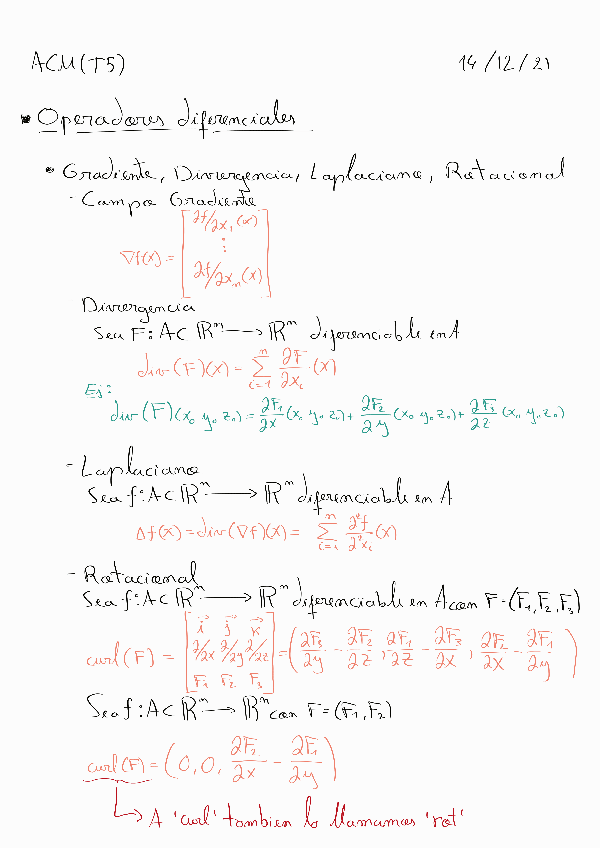 ACM(T5) 14/12/21
• Operadores diferenciales
• Gradiente, Divergencia, Laplaciano, Rotacional
- Campo Gradiente
∇f(x) = [∂f/∂x₁(x) ⋮ ∂f/∂xₙ(x)]
Divergencia
Sea F: A⊂ℝⁿ → ℝⁿ diferenciable en A
div(F)(x) = ∑ᵢ₌₁ⁿ ∂F/∂xᵢ (x)
Ej:
div(F)(x₀ y₀ z₀) = ∂F₁/∂x (x₀ y₀ z₀) + ∂F₂/∂y (x₀ y₀ z₀) + ∂F₃/∂z (x₀ y₀ z₀)
- Laplaciano
Sea f: A⊂ℝⁿ → ℝⁿ diferenciable en A
Δf(x) = div(∇f)(x) = ∑ᵢ₌ᵢⁿ ∂²f/∂²xᵢ (x)
- Rotacional
Sea f: A⊂ℝⁿ → ℝⁿ diferenciable en A con F=(F₁,F₂,F₃)
curl(F) = [i⃗ j⃗ k⃗ ∂/∂x ∂/∂y ∂/∂z F₁ F₂ F₃] = (∂F₃/∂y - ∂F₂/∂z, ∂F₁/∂z - ∂F₃/∂x, ∂F₂/∂x - ∂F₁/∂y)
Sea f: A⊂ℝⁿ → ℝⁿ con F=(F₁,F₂)
curl(F) = (0, 0, ∂F₂/∂x - ∂F₁/∂y)
A 'curl' tambien lo llamamos 'rot'